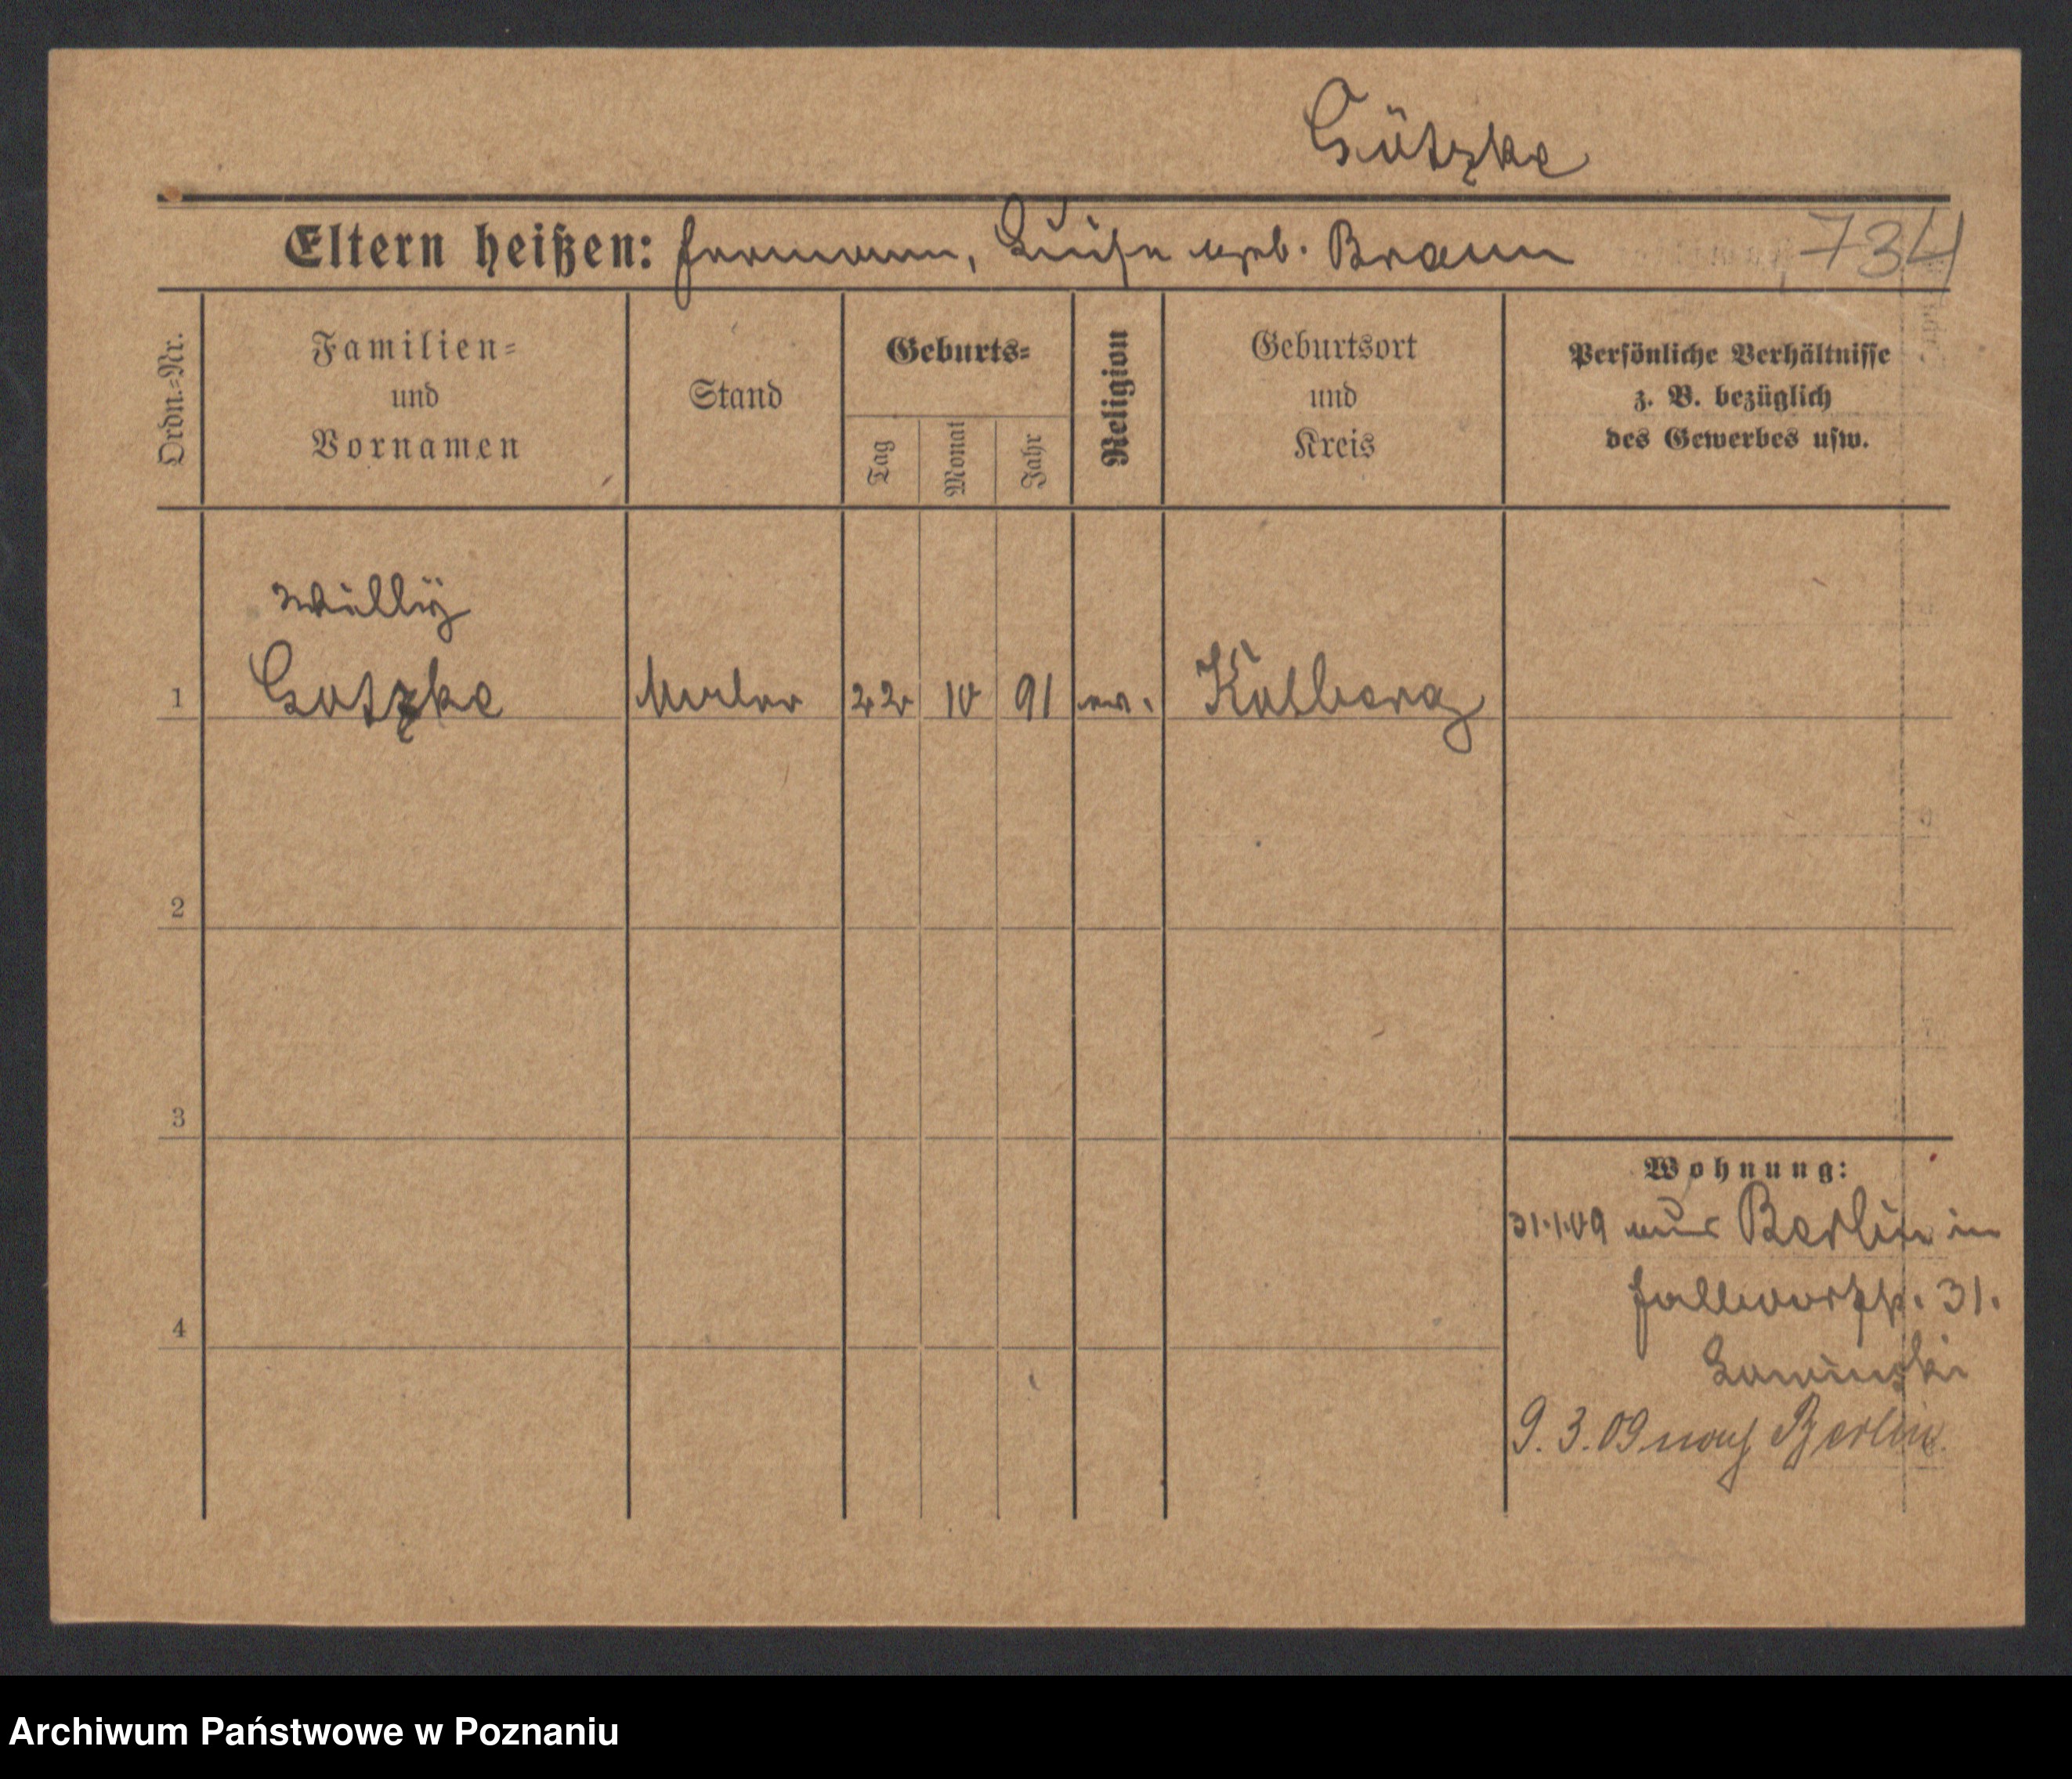 Götzke
Eltern heißen: Hermann, Luise geb. Braun 734
Ordn.-Nr.
Familien-
und
Vornamen
Stand
Geburts-
Tag
Monat
Jahr
Religion
Geburtsort
und
Kreis
Persönliche Verhältnisse
z. B. bezüglich
des Gewerbes usw.
Willÿ
1 Gotzke Maler 22 10 91 ev. Kolberg
2
3
4
Wohnung:
31.1.09 aus Berlin in
31.
9.3.09 nach Berlin.
Archiwum Państwowe w Poznaniu